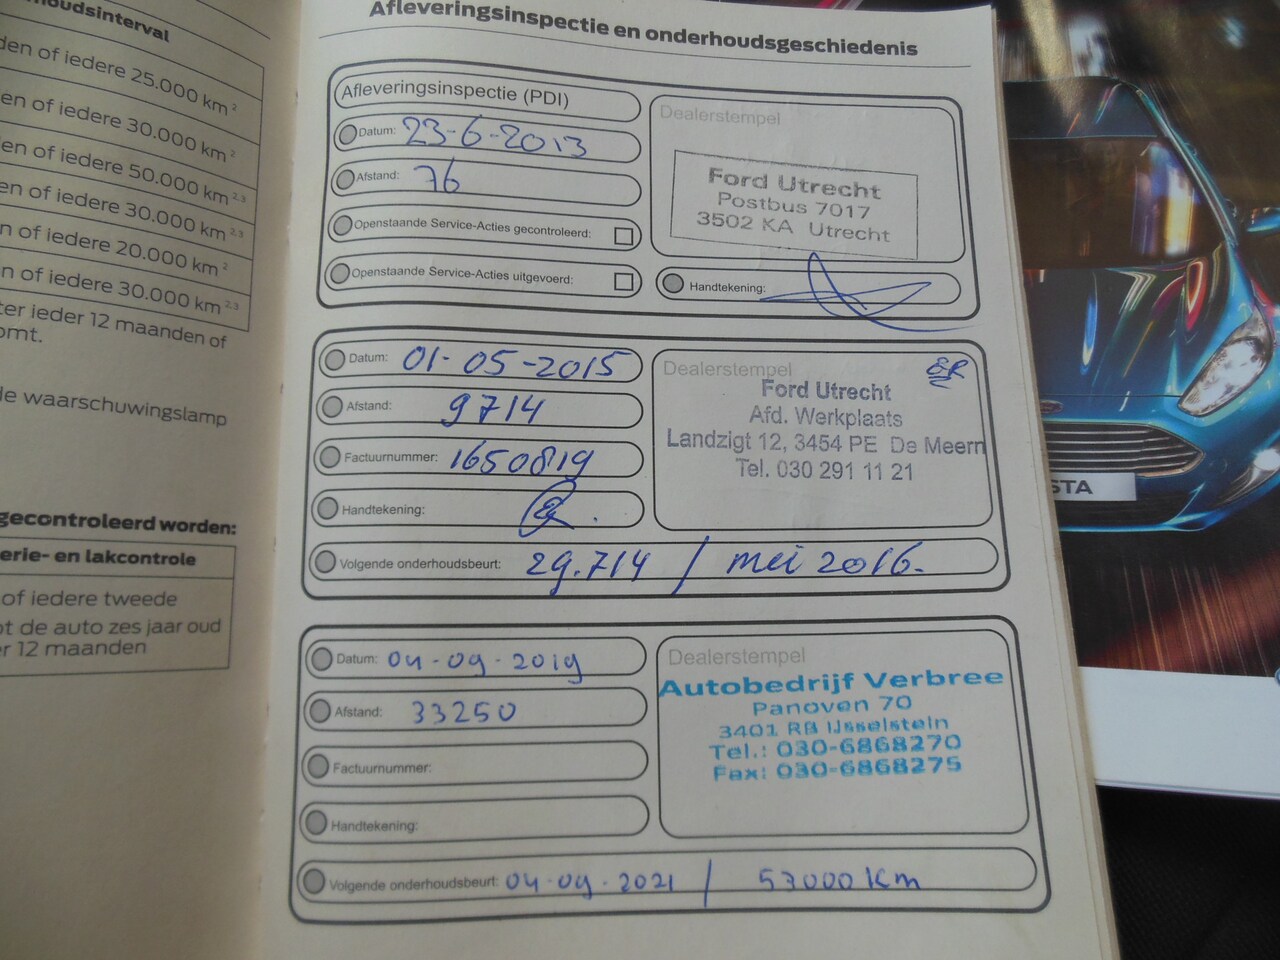 houdsinterval
den of iedere 25.000 km ²
en of iedere 30.000 km ²
len of iedere 50.000 km ²·³
en of iedere 30.000 km ²·³
n of iedere 20.000 km ²
n of iedere 30.000 km ²·³
ter ieder 12 maanden of
omt.
de waarschuwingslamp
gecontroleerd worden:
erie- en lakcontrole
of iedere tweede
ot de auto zes jaar oud
er 12 maanden
Afleveringsinspectie en onderhoudsgeschiedenis
Afleveringsinspectie (PDI)
Datum: 23-6-2013
Afstand: 76
Openstaande Service-Acties gecontroleerd:
Openstaande Service-Acties uitgevoerd:
Dealerstempel
Ford Utrecht
Postbus 7017
3502 KA Utrecht
Handtekening:
Datum: 01-05-2015
Afstand: 9714
Factuurnummer: 1650819
Handtekening:
Volgende onderhoudsbeurt: 29.714 / mei 2016.
Dealerstempel
Ford Utrecht
Afd. Werkplaats
Landzigt 12, 3454 PE De Meern
Tel. 030 291 11 21
Datum: 04-09-2019
Afstand: 33250
Factuurnummer:
Handtekening:
Volgende onderhoudsbeurt: 04-09-2021 / 53000 Km
Dealerstempel
Autobedrijf Verbree
Panoven 70
3401 RB IJsselstein
Tel.: 030-6868270
Fax: 030-6868275
STA